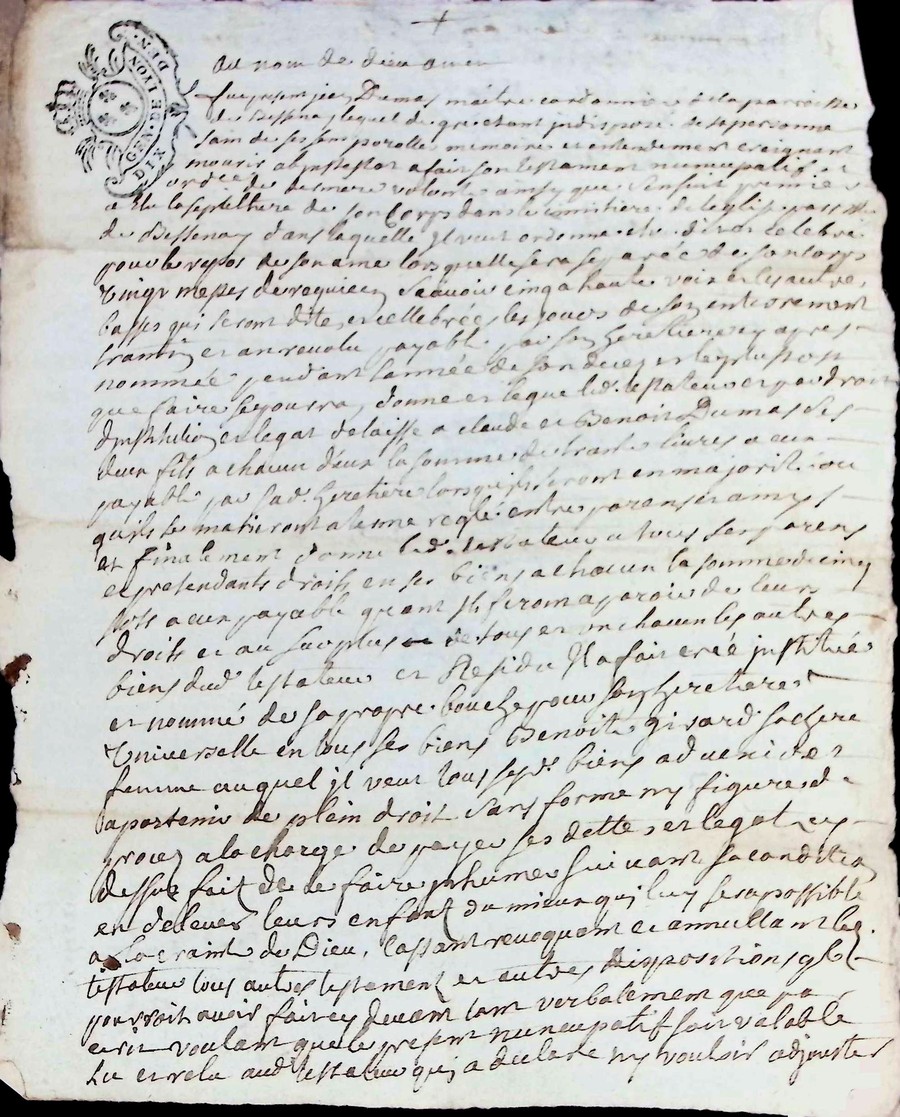 GEN. DE LYON
DIX
au nom de dieu amen
fut present jean Dumas maitre cordonnier de la parroisse
de Bessenay lequel de gré etant jndisposé de sa personne
sain de ses sens parolle memoire et entendement creignant
mourir abjntestat a fait son testament nuncupatif et
ordce de derniere volonté ainsy que sensuit premie
a Elu la sepulture de son corps dans le cimitiere de leglise parsse
de Bessenay dans laquelle Jl veut ordonne etre dit et celebré
pour le repos de son ame lorsquelle sera separée de son corps
Vingt messes de requiem scavoir cinq a haute voix et les autres
basses qui seront dites et cellebrées les jours de son enterrement
trantin et an revolu payable par son heretiere cy apres
nommée pendant lannée de son deces et le plustost
que faire se pourra donne et legue led. testateur et par droit
dinstitution et legat delaisse a claude et Benoit Dumas ses
deux fils a chacun deux la somme de trante livres a eux
payable par sad. heretiere lorsquils seront en majorité ou
quils se matieront a leur regle entre parens et amys
et finalement donne led. testateur a tous ses parens
et pretendants droits en ses biens a chacun la somme de cinq
sols a eux payable quant Jls feront aparoir de leurs
droits et au surplus de tous et un chacun les autres
biens dud. testateur et Residu Jl a fait creé jnstitué
et nommé de sa propre bouche pour son heretiere
Universelle en tous ses biens Benoite girard sa chere
femme auquel jl veut tous sesd. biens advenir et
apartenir de plein droit sans forme ny figure de
procez a la charge de payer ses dettes et legat cy
dessus fait de le faire jnhumer suivant sa condition
et deleuer leurs enfant du mieux qu'il luy sera possible
a La craint de Dieu, cassant revoquant et annullant led.
testateur tous autres testament et autres dispositions quil
pourroit avoir fait cy devant tant verbalement que par
ecrit voulant que le present nuncupatif soit valable
Lu et relu aud. testateur qui a declaré ny vouloir adjouster